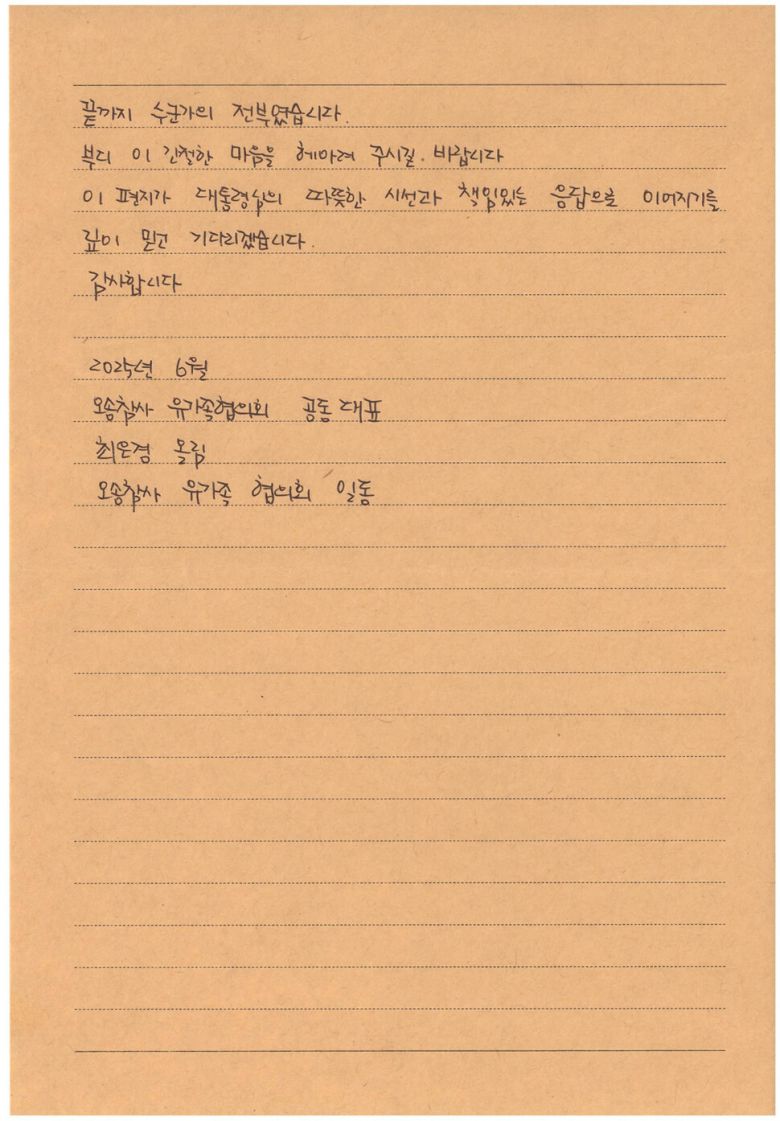 끝까지 수군가의 전부였습니다.
부디 이 간절한 마음을 헤아려 주시길. 바랍니다
이 편지가 대통령님의 따뜻한 시선과 책임있는 응답으로 이어지기를
깊이 믿고 기다리겠습니다.
감사합니다
2025년 6월
오송참사 유가족협의회 공동대표
최은경 올림
오송참사 유가족 협의회 일동